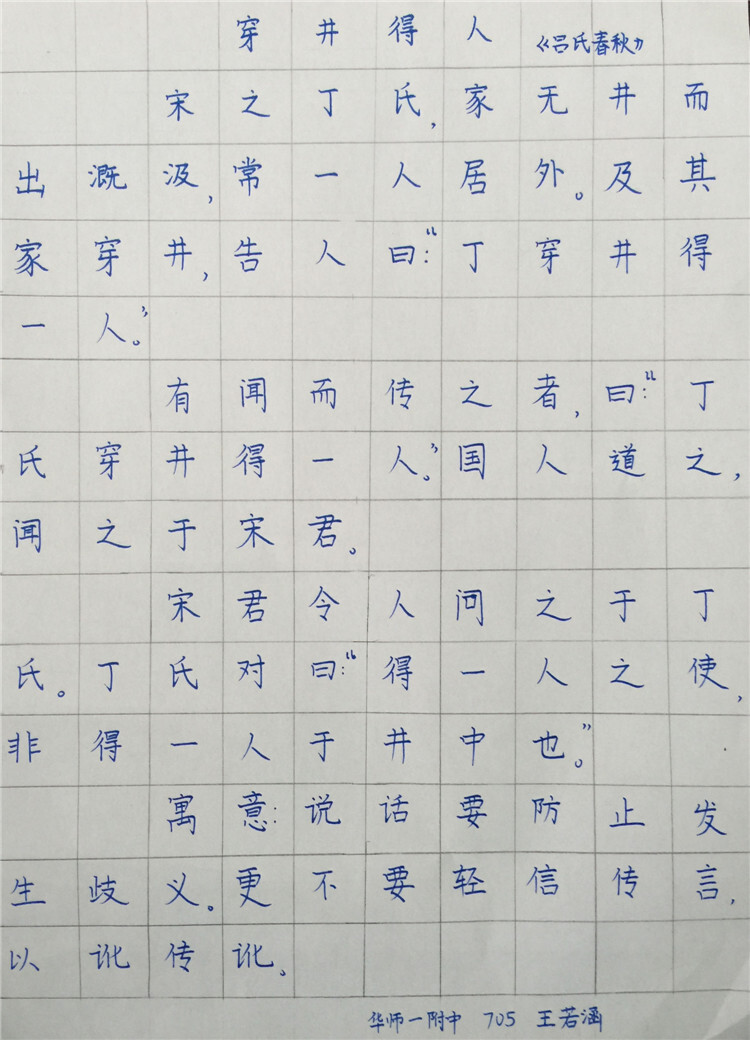 穿井得人 《吕氏春秋》
宋之丁氏,家无井而
出溉汲,常一人居外。及其
家穿井,告人曰:“丁穿井得
一人。”
有闻而传之者,曰:“丁
氏穿井得一人。”国人道之,
闻之于宋君。
宋君令人问之于丁
氏。丁氏对曰:“得一人之使,
非得一人于井中也。”
寓意:说话要防止发
生歧义。更不要轻信传言,
以讹传讹。
华师一附中 705 王若涵